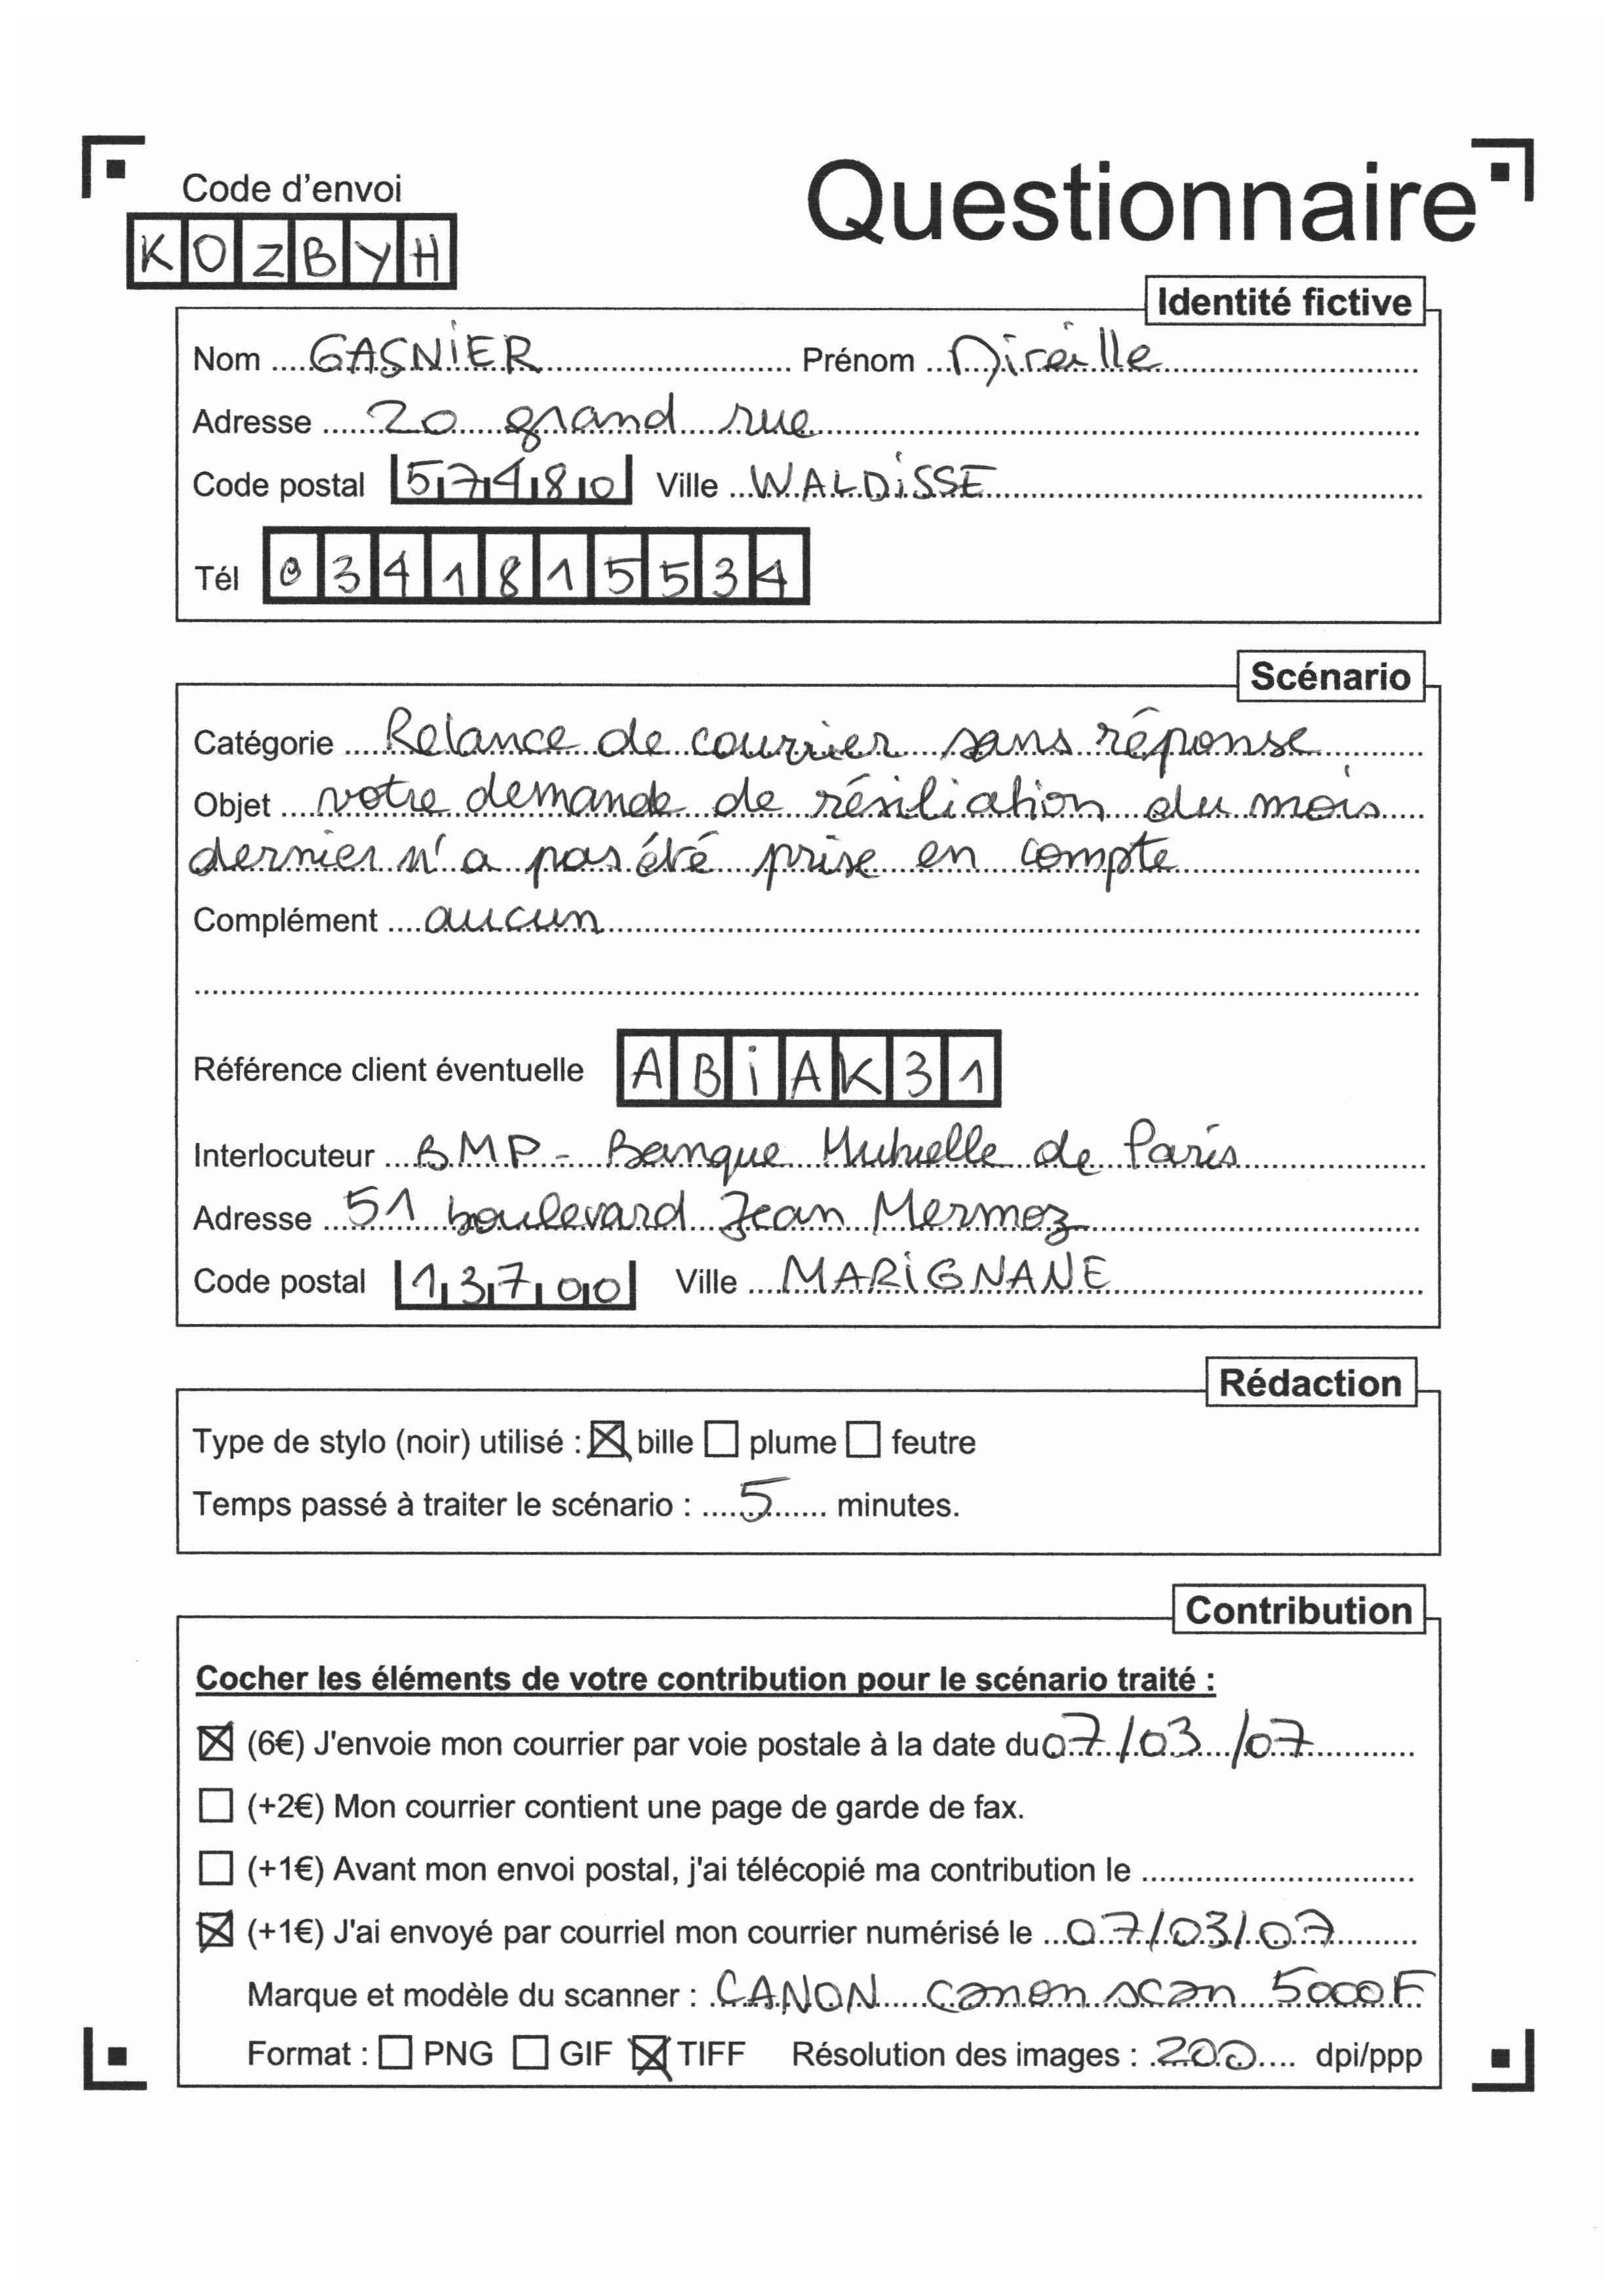 Code d'envoi
Questionnaire
KOZBYH
Identité fictive
Nom GASNIER Prénom Mireille
Adresse 20 grand rue
Code postal 57480 Ville WALDISSE
Tél 0341815534
Scénario
Catégorie Relance de courrier sans réponse
Objet votre demande de résiliation du mois
dernier n'a pas été prise en compte
Complément aucun
Référence client éventuelle ABIAK31
Interlocuteur BMP - Banque Mutuelle de Paris
Adresse 51 boulevard Jean Mermoz
Code postal 13700 Ville MARIGNANE
Rédaction
Type de stylo (noir) utilisé : ☒ bille ☐ plume ☐ feutre
Temps passé à traiter le scénario : 5 minutes.
Contribution
Cocher les éléments de votre contribution pour le scénario traité :
☒ (6€) J'envoie mon courrier par voie postale à la date du 07/03/07
☐ (+2€) Mon courrier contient une page de garde de fax.
☐ (+1€) Avant mon envoi postal, j'ai télécopié ma contribution le
☒ (+1€) J'ai envoyé par courriel mon courrier numérisé le 07/03/07
Marque et modèle du scanner : CANON canon scan 5000F
Format : ☐ PNG ☐ GIF ☒ TIFF Résolution des images : 200 dpi/ppp